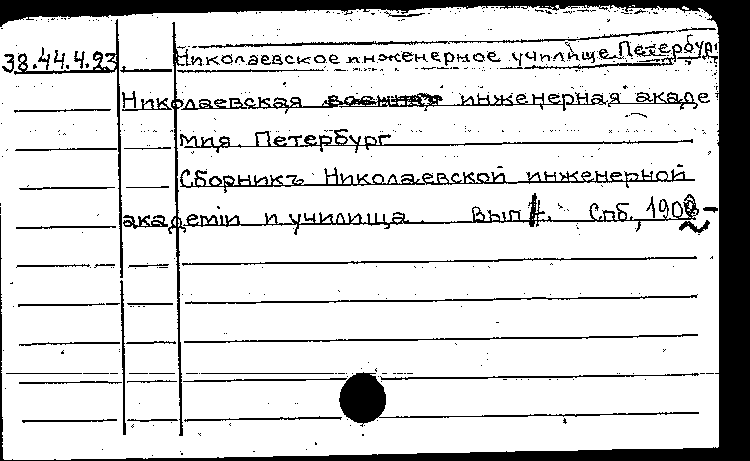 38.44.4.23. Николаевское инженерное училище. Петербург
Николаевская военная инженерная акаде
мия. Петербург
Сборникъ Николаевской инженерной
академіи и училища. Вып. Спб., 190